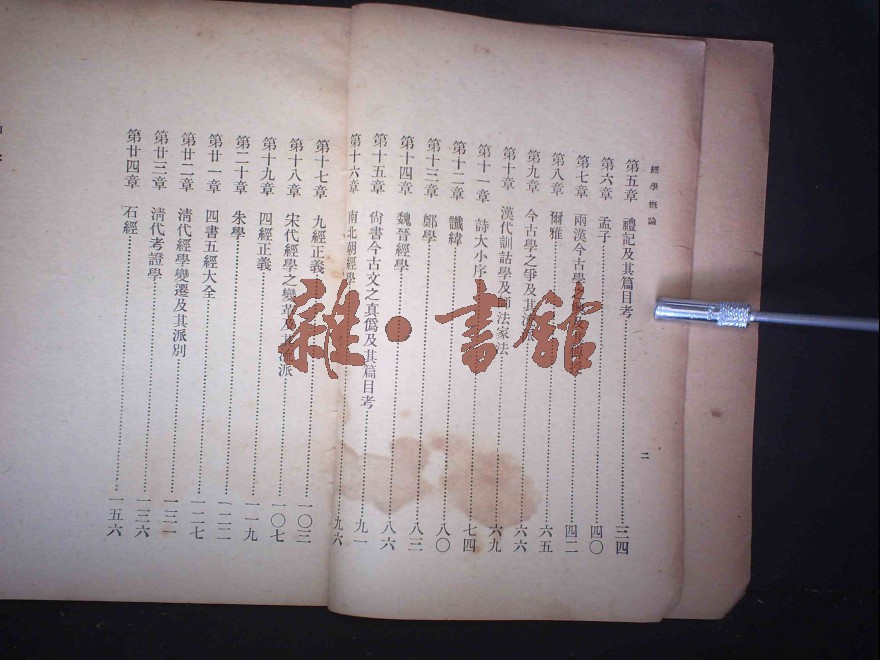 經學概論
第五章 禮記及其篇目考 三四
第六章 孟子 四〇
第七章 兩漢今古學 四二
第八章 爾雅 六五
第九章 今古學之爭及其 六六
第十章 漢代訓詁學及師法家法 六九
第十一章 詩大小序 七四
第十二章 讖緯 八〇
第十三章 鄭學 八三
第十四章 魏晉經學 八六
第十五章 尙書今古文之真僞及其篇目考 九一
第十六章 南北朝經學 九六
第十七章 九經正義 一〇三
第十八章 宋代經學之變革及其流派 一〇七
第十九章 四經正義 一一九
第二十章 朱學 一二二
第廿一章 四書五經大全 一二七
第廿二章 清代經學變遷及其派別 一三一
第廿三章 清代考證學 一三六
第廿四章 石經 一五六
二
雜·書館